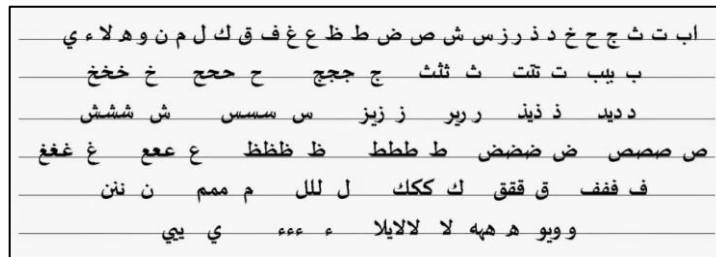 اب ت ث ج ح خ د ذ ر ز س ش ص ض ط ظ ع غ ف ق ك ل م ن و ه لا ء ي
ب ببب ت تتت ث ثثث ج ججج ح ححح خ خخخ
د ديد ذ ذيذ ر رير ز زيز س سسس ش ششش
ص صصص ض ضضض ط ططط ظ ظظظ ع ععع غ غغغ
ف ففف ق ققق ك ككك ل للل م ممم ن ننن
و ويو ه ههه لا لالايلا ء ءءء ي ييي